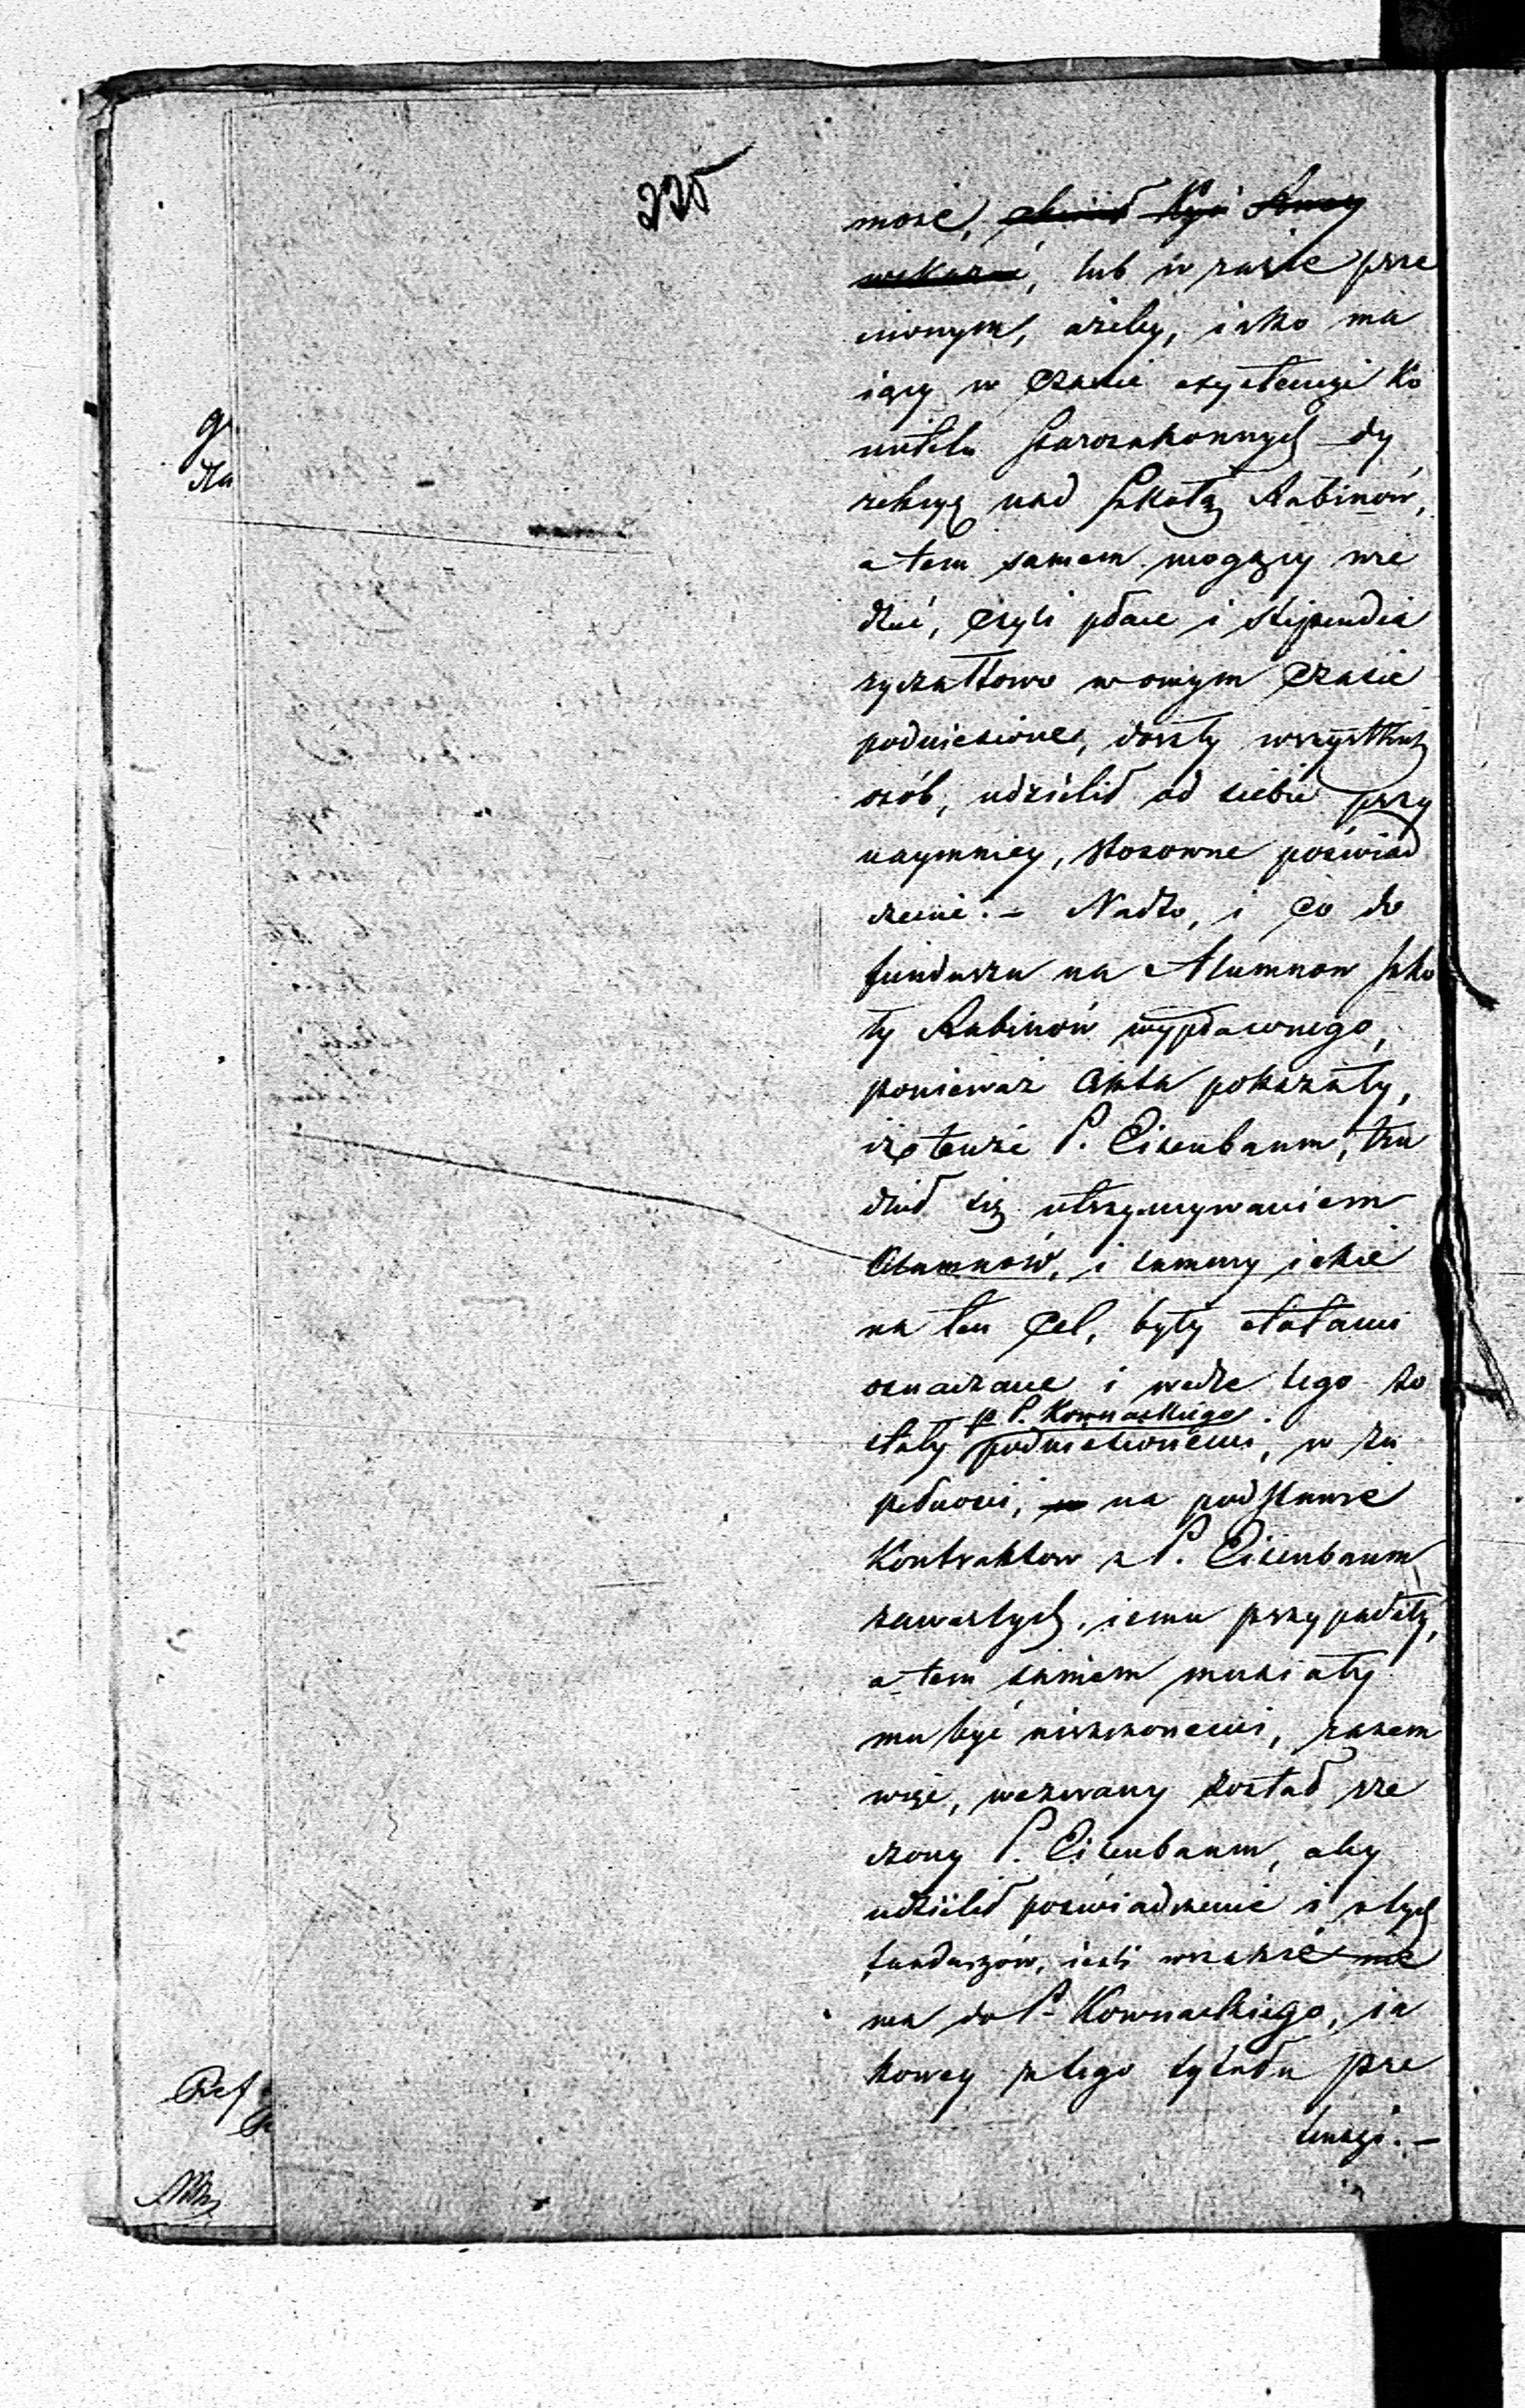 225
może,
lub w razie prze
ciwnym, ażeby, iako ma
iący w czasie exystencyi Ko
mitetu Starozakonnych dy
rekcyą nad Szkołą Rabinów,
a tem samem mogący wie
dzieć, czyli płace i stipendia
ryczałtowo w onym czasie
podniesione, doszły wszystkich
osób, udzielił od siebie przy
naymniey, stosowne poświad
czenie. – Nadto, i co do
funduszu na Alumnow Szko
ły Rabinów wypłaconego,
ponieważ Akta pokazały,
iż tenże P. Eisenbaum, tru
dnił się utrzymywaniem
Alumnów, i summy iakie
na ten cel, były etatami
oznaczane i wedle tego zo
p P. Kownackiego
stały podniesionemi, w zu
pełności, na podstawie
Kontraktow z P. Eisenbaum
zawartych, iemu przypadały,
a tem samem musiały
mu być uiszczonemi, zatem
więc, wezwany został rze
czony P. Eisenbaum, aby
udzielił poświadczenie i z tych
funduszów, ieśli wszakże nie
ma do P. Kownackiego, ia
kowey z tego tytułu pre
tensyi. –
Ref